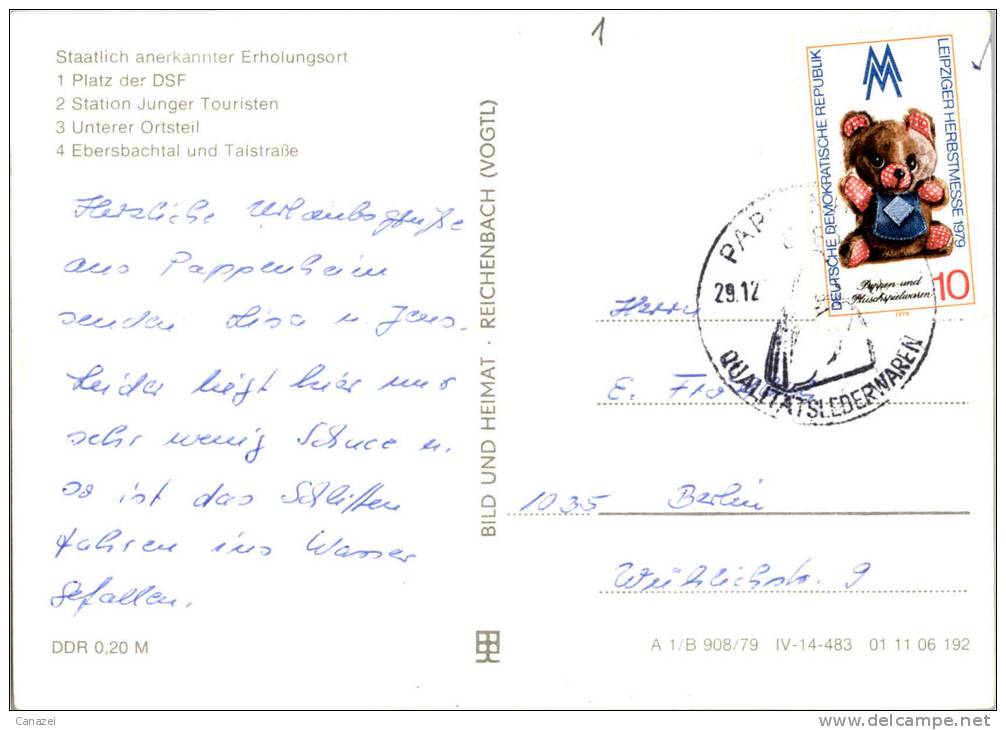 Staatlich anerkannter Erholungsort
1 Platz der DSF
2 Station Junger Touristen
3 Unterer Ortsteil
4 Ebersbachtal und Talstraße
Herzliche Urlaubsgrüße
aus Pappenheim
senden Lisa u. Jens.
Leider liegt hier nur
sehr wenig Schnee u.
so ist das Schlitten
fahren ins Wasser
gefallen.
DDR 0,20 M
BILD UND HEIMAT · REICHENBACH (VOGTL)
1
DEUTSCHE DEMOKRATISCHE REPUBLIK
LEIPZIGER HERBSTMESSE 1979
MM
Puppen- und
Plüschspielwaren
10
1979
29.12
QUALITÄTSLEDERWAREN
Herrn
E.
1035 Berlin
Wühlischstr. 9
A 1/B 908/79 IV-14-483 01 11 06 192
Canazei
www.delcampe.net